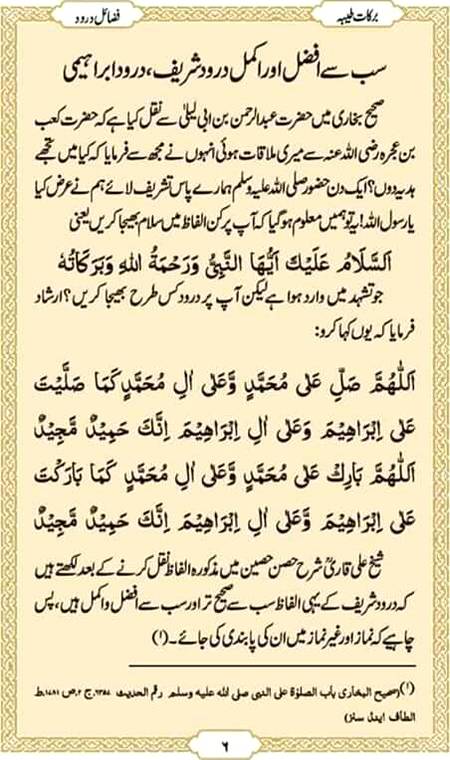 برکات طیبہ
فضائل درود
سب سے افضل اور اکمل درود شریف، درود ابراہیمی
صحیح بخاری میں حضرت عبدالرحمن بن ابی لیلیٰ سے نقل کیا ہے کہ حضرت کعب
بن عجرہ رضی اللہ عنہ سے میری ملاقات ہوئی انہوں نے مجھ سے فرمایا کہ کیا میں تجھے
ہدیہ دوں؟ ایک دن حضور صلی اللہ علیہ وسلم ہمارے پاس تشریف لائے ہم نے عرض کیا
یا رسول اللہ! یہ تو ہمیں معلوم ہو گیا کہ آپ پر کن الفاظ میں سلام بھیجا کریں یعنی
اَلسَّلَامُ عَلَيْكَ اَيُّهَا النَّبِيُّ وَرَحْمَةُ اللهِ وَبَرَكَاتُهٗ
جو تشہد میں وارد ہوا ہے لیکن آپ پر درود کس طرح بھیجا کریں؟ ارشاد
فرمایا کہ یوں کہا کرو:
اَللّٰهُمَّ صَلِّ عَلٰى مُحَمَّدٍ وَّعَلٰى اٰلِ مُحَمَّدٍ كَمَا صَلَّيْتَ
عَلٰى اِبْرَاهِيْمَ وَعَلٰى اٰلِ اِبْرَاهِيْمَ اِنَّكَ حَمِيْدٌ مَّجِيْدٌ
اَللّٰهُمَّ بَارِكْ عَلٰى مُحَمَّدٍ وَّعَلٰى اٰلِ مُحَمَّدٍ كَمَا بَارَكْتَ
عَلٰى اِبْرَاهِيْمَ وَعَلٰى اٰلِ اِبْرَاهِيْمَ اِنَّكَ حَمِيْدٌ مَّجِيْدٌ
شیخ علی قاریؒ شرح حصن حصین میں مذکورہ الفاظ نقل کرنے کے بعد لکھتے ہیں
کہ درود شریف کے یہی الفاظ سب سے صحیح تر اور سب سے افضل و اکمل ہیں، پس
چاہیے کہ نماز اور غیر نماز میں ان کی پابندی کی جائے۔(۱)
(۱)(صحیح البخاری باب الصلوٰۃ علی النبی صلی اللہ علیہ وسلم رقم الحدیث ۶۳۵۷، ج ۲، ص ۱۴۸۱، ط
الطاف اینڈ سنز)
۶